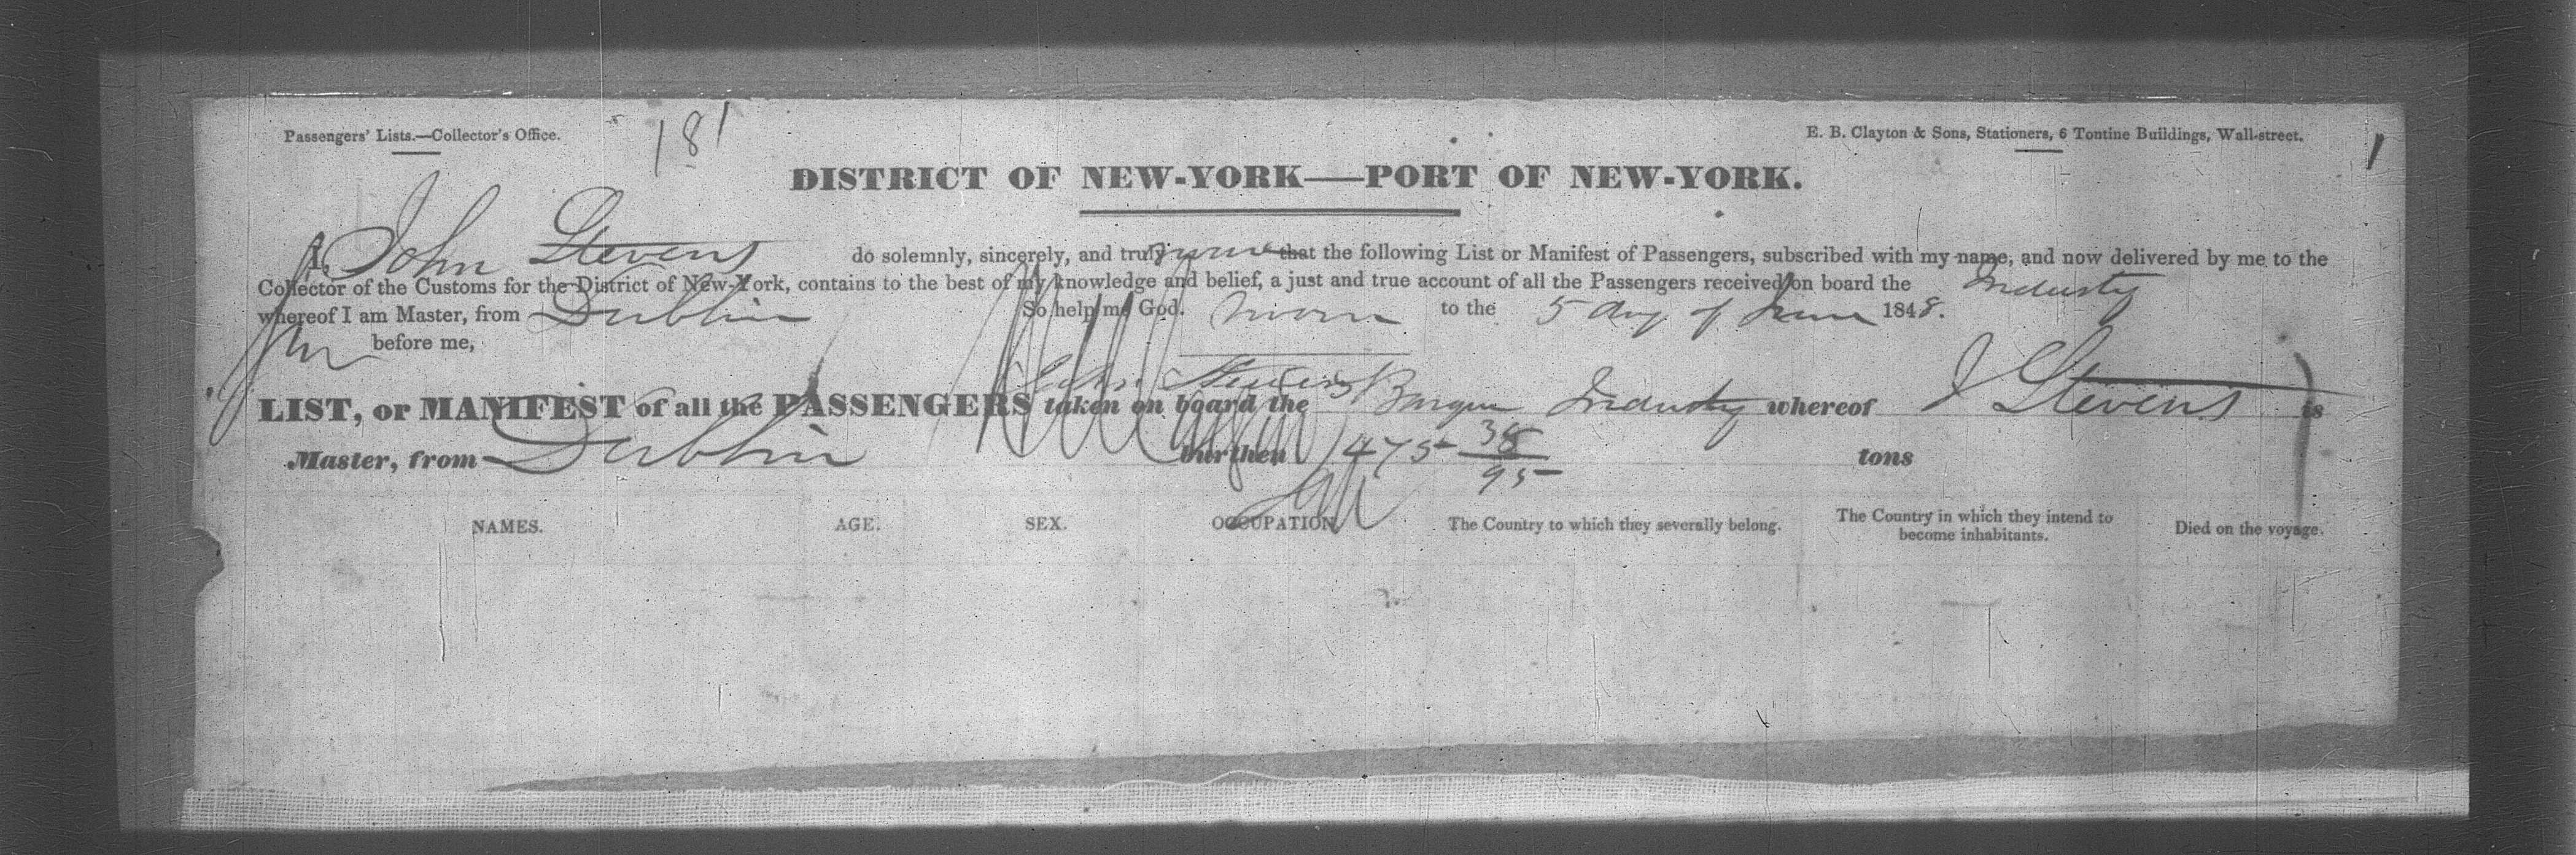 181
Passengers' Lists.—Collector's Office.
E. B. Clayton & Sons, Stationers, 6 Tontine Buildings, Wall-street.
DISTRICT OF NEW-YORK—PORT OF NEW-YORK.
I, John Stevens do solemnly, sincerely, and truly swear that the following List or Manifest of Passengers, subscribed with my name, and now delivered by me to the
Collector of the Customs for the District of New-York, contains to the best of my knowledge and belief, a just and true account of all the Passengers received on board the Industry
whereof I am Master, from Dublin So help me God. Sworn to the 5 day of June 1848.
before me,
John Stevens
LIST, or MANIFEST of all the PASSENGERS taken on board the Barque Industry whereof J Stevens is
Master, from Dublin burthen 475 38/95 tons
NAMES. AGE. SEX. OCCUPATION. The Country to which they severally belong. The Country in which they intend to become inhabitants. Died on the voyage.